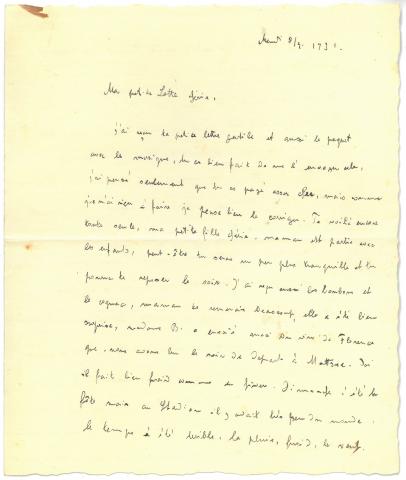 Mardi 8/9. 1931.
Ma petite Lotte chérie,
j'ai reçu ta petite lettre gentille et aussi le paquet
avec la musique, tu as bien fait de me l'envoyer,
j'ai pensé seulement que tu as payé assez cher, mais comme
je n'ai rien à faire je pense bien le corriger. Te voilà encore
toute seule, ma petite fille chérie, maman est partie avec
les enfants, peut-être tu seras un peu plus tranquille et tu
pourras te reposer le soir. J'ai reçu aussi les bonbons et
le cognac, maman te remercie beaucoup, elle a été bien
surprise, madame B. a envoyé aussi du vin de Florence
que nous avons bu le soir de départ à. Ici
il fait bien froid comme en hiver. Dimanche j'ai été à la
fête mais au Stadion il y avait très peu du monde.
le temps a été terrible, la pluie, froid, le vent.